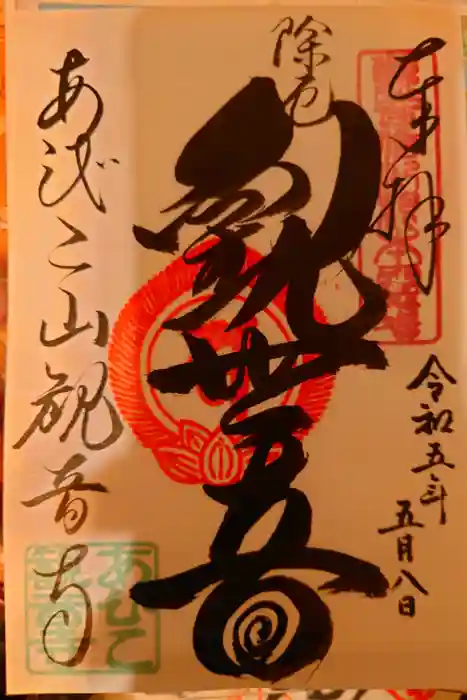 奉拝
令和五年
五月八日
除厄
観世音
あびこ山観音寺
あびこ
観音寺